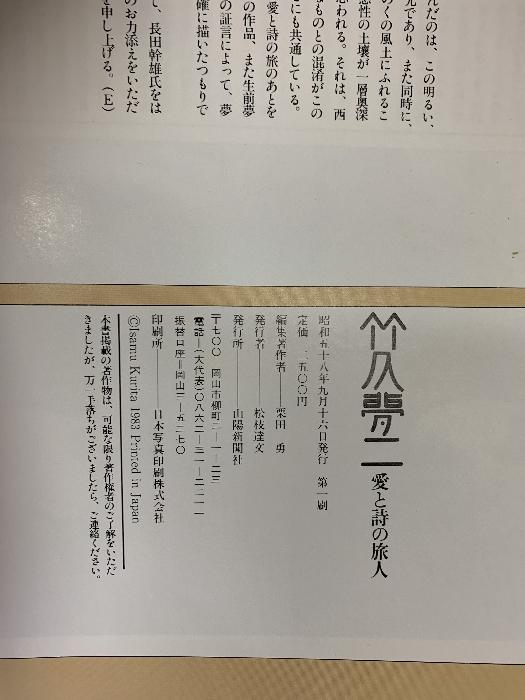 んだのは、この明るい、
光であり、また同時に、
くの風土にふれるこ
感性の土壌が一層奥深
思われる。それは、西
なものとの混淆がこの
にも共通している。
愛と詩の旅のあとを
の作品、また生前夢
の証言によって、夢
確に描いたつもりで
て、長田幹雄氏をは
のお力添えをいただ
を申し上げる。(E)
竹久夢二 愛と詩の旅人
昭和五十八年九月十六日発行 第一刷
定価 二、五〇〇円
編集著作者――栗田 勇
発行者――松枝達文
発行所――山陽新聞社
〒七〇〇 岡山市柳町二―一―二三
電話=(大代表)〇八六二―三一―二二一一
振替口座=岡山三―五二七〇
印刷所――日本写真印刷株式会社
©Isamu Kurita 1983 Printed in Japan
本書掲載の著作物は、可能な限り著作権者のご了解をいただ
きましたが、万一手落ちがございましたら、ご連絡ください。